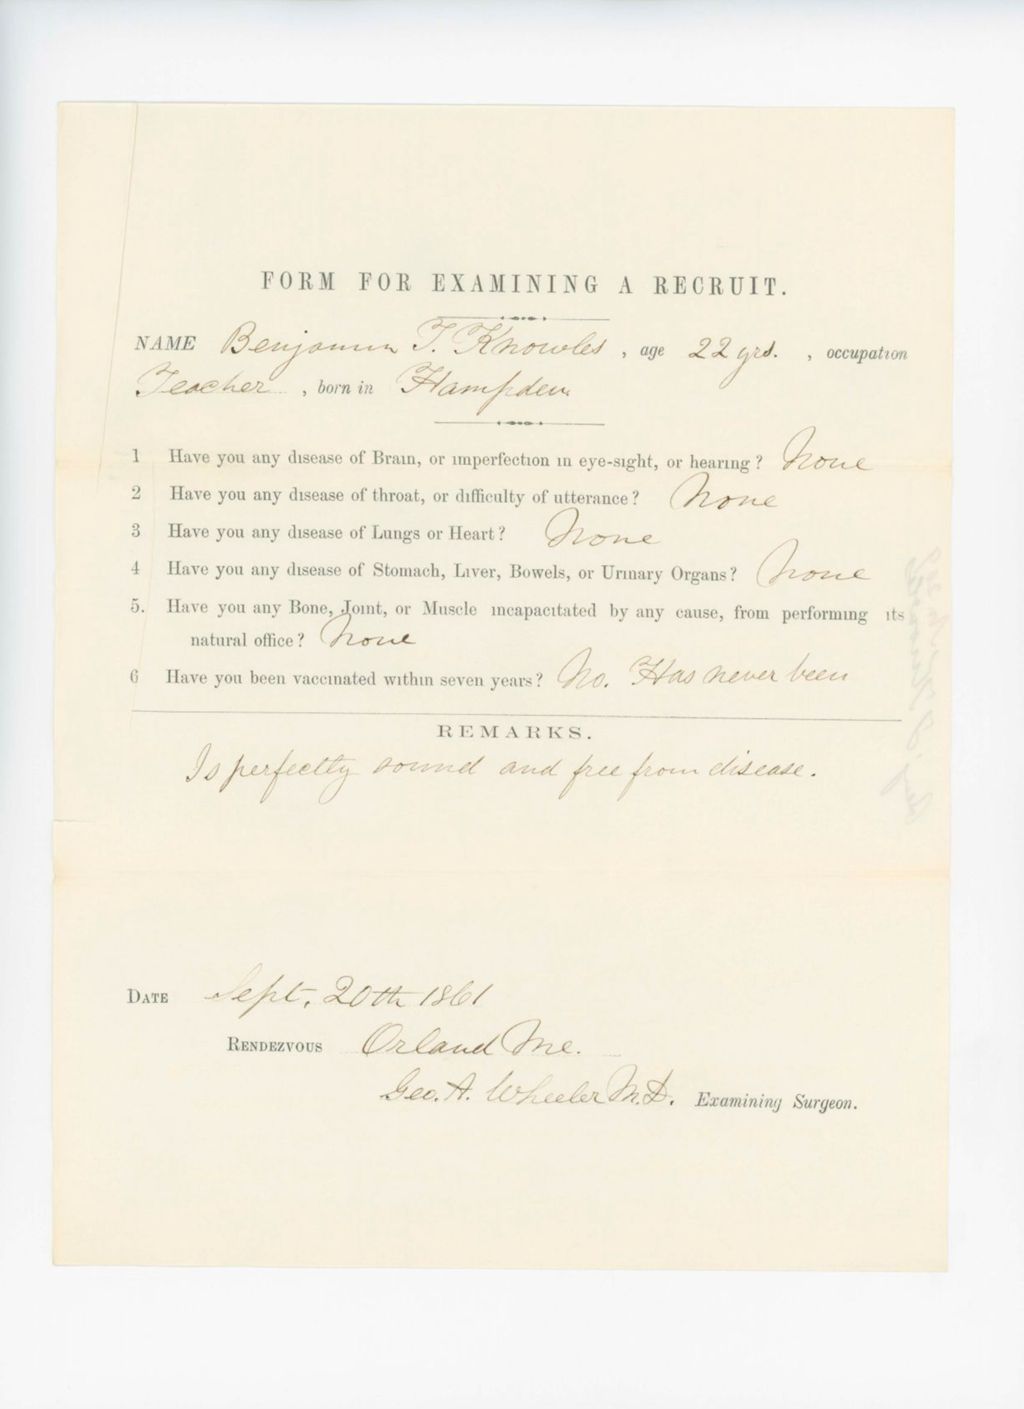 FORM FOR EXAMINING A RECRUIT.
NAME Benjamin T. Knowles, age 22 yrs., occupation
Teacher, born in Hampden
1 Have you any disease of Brain, or imperfection in eye-sight, or hearing? None
2 Have you any disease of throat, or difficulty of utterance? None
3 Have you any disease of Lungs or Heart? None
4 Have you any disease of Stomach, Liver, Bowels, or Urinary Organs? None
5. Have you any Bone, Joint, or Muscle incapacitated by any cause, from performing its
natural office? None
6 Have you been vaccinated within seven years? No. Has never been
REMARKS.
Is perfectly sound and free from disease.
DATE Sept. 20th 1861
RENDEZVOUS Orland Me.
Geo. A. Wheeler M.D. Examining Surgeon.